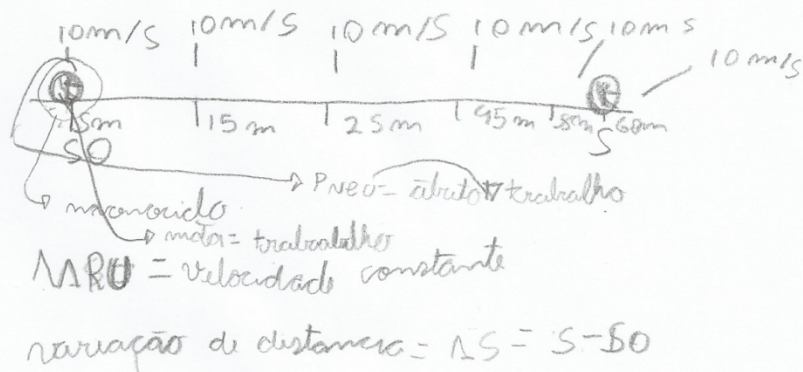 10m/s 10m/s 10m/s 10m/s 10m s 10m/s
5m 15m 25m 45m 60m
S0 S
Pneu = trabalho
mota = trabalho
MRU = velocidade constante
variação de distancia = ΔS = S-S0